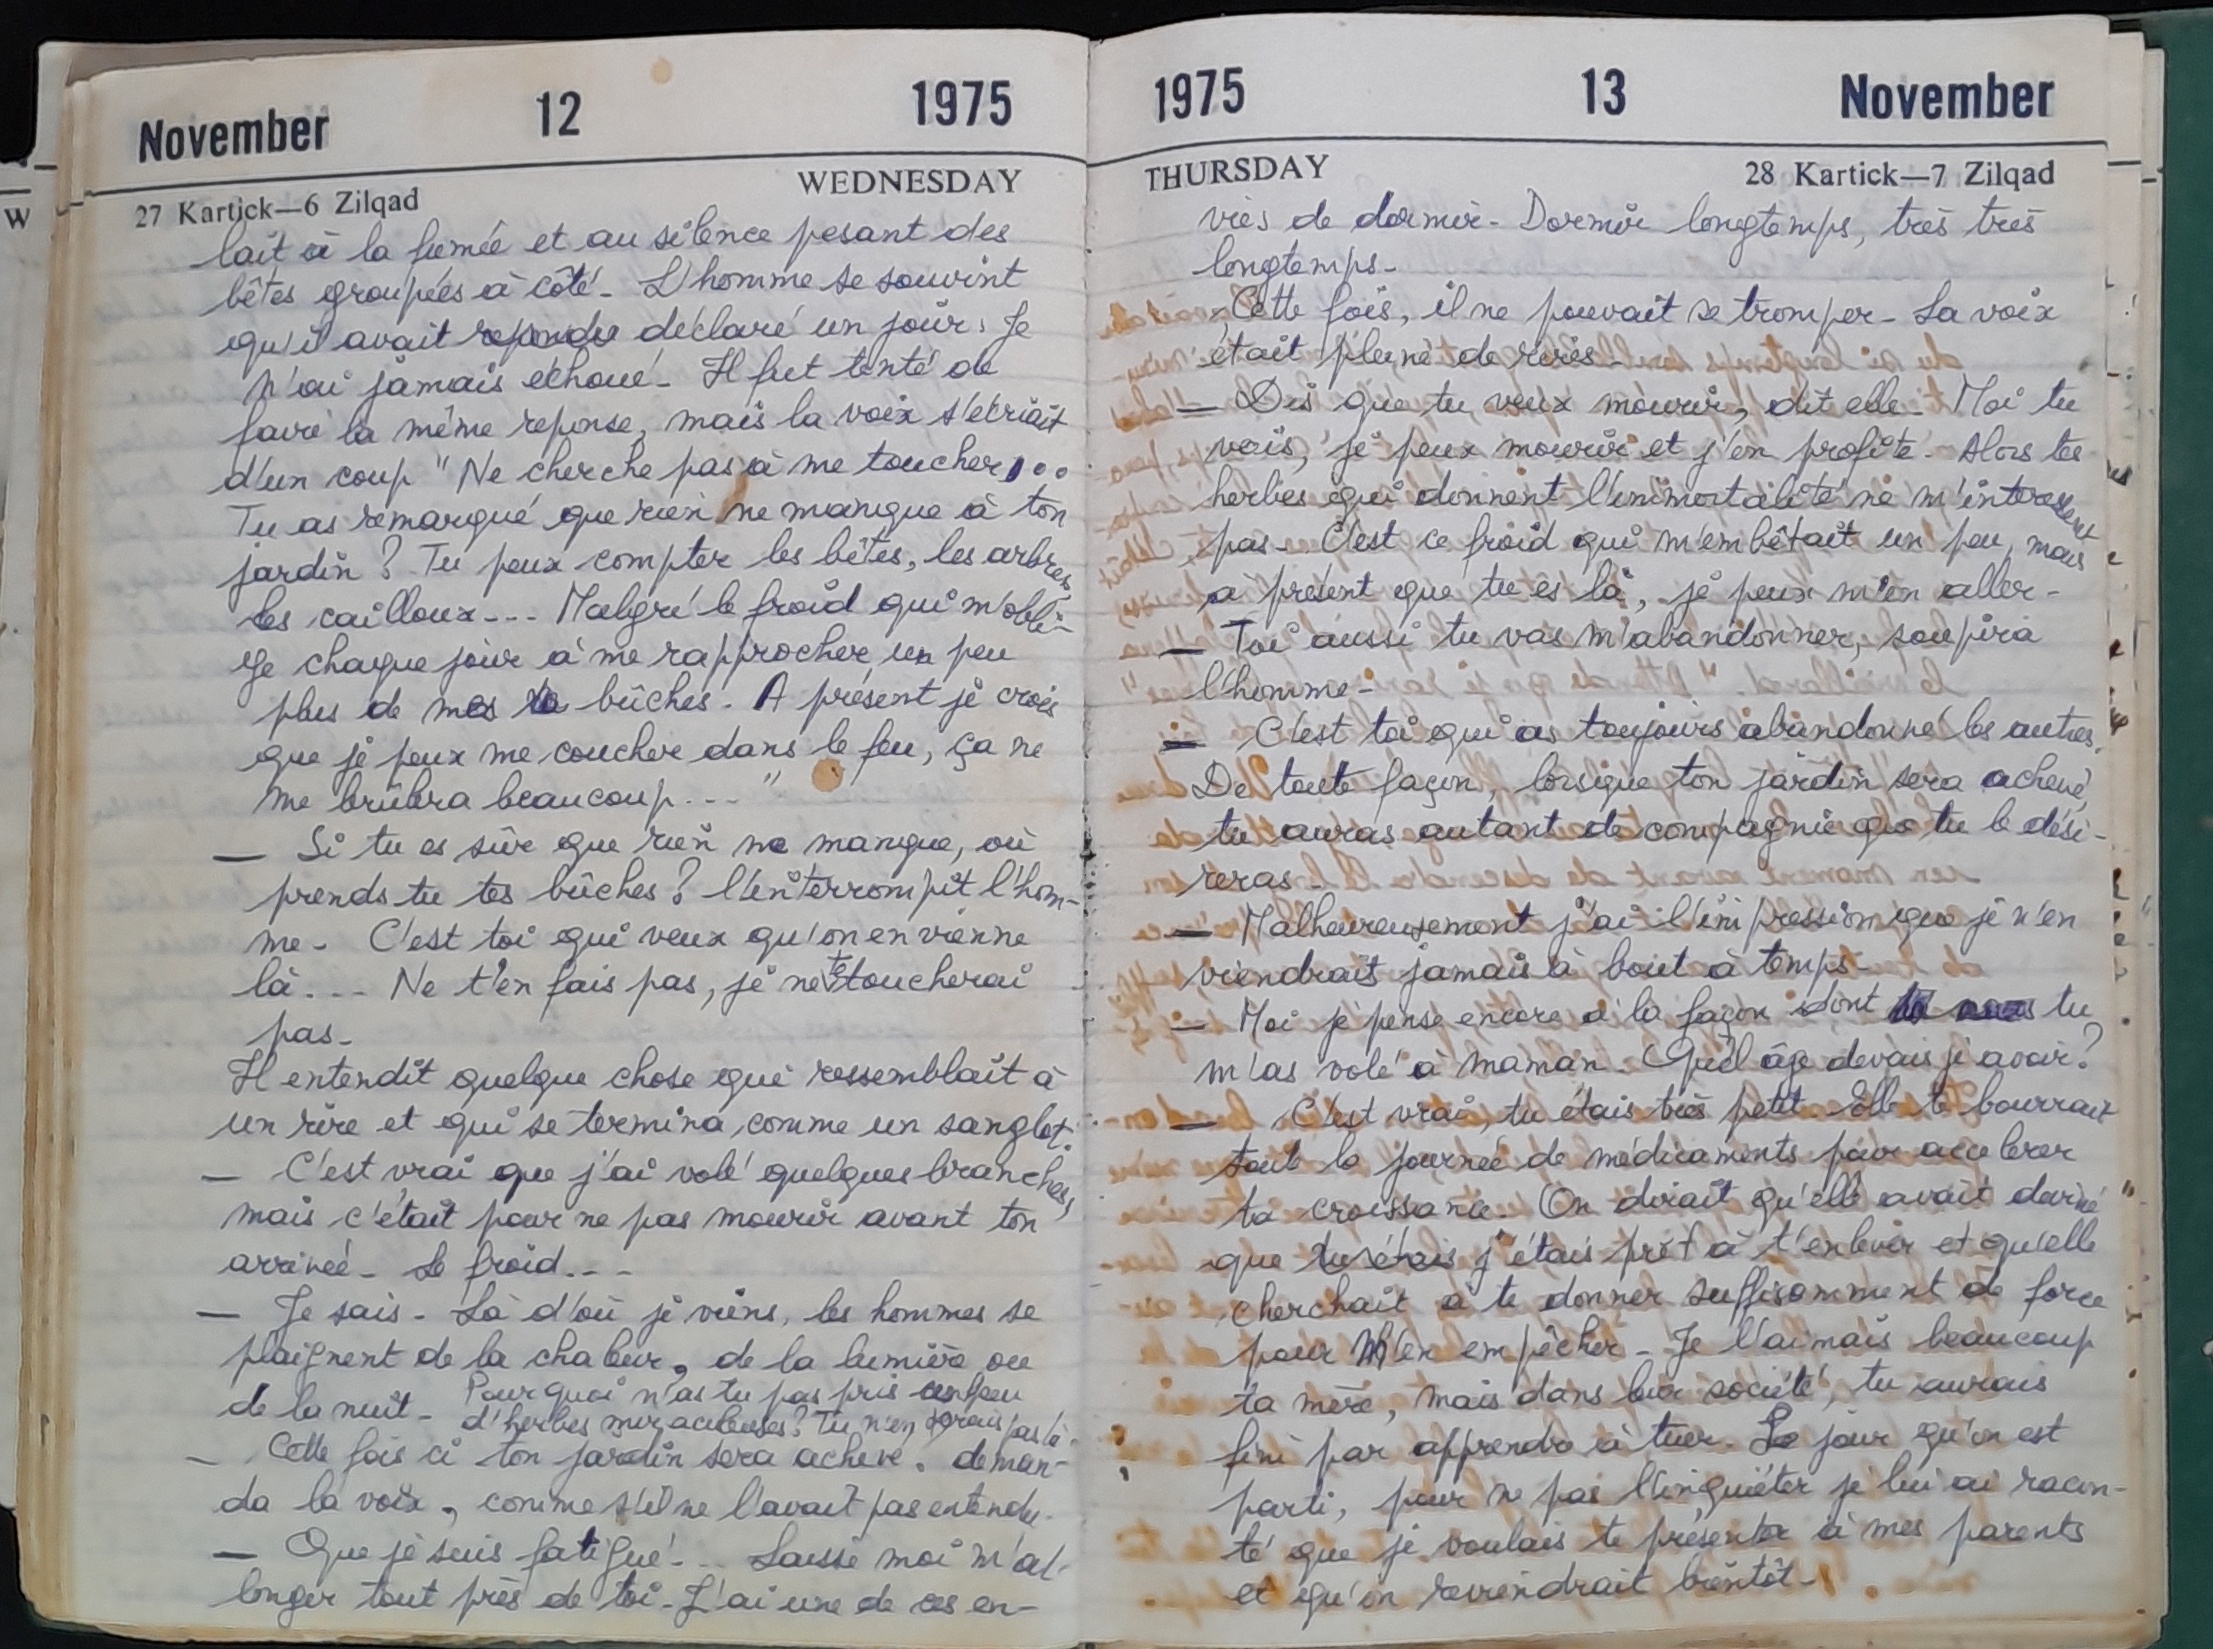 November 12 1975
WEDNESDAY
27 Kartick—6 Zilqad
lait à la fumée et au silence pesant des
bêtes groupées à côté. L'homme se souvint
qu'il avait repondu déclaré un jour: Je
n'ai jamais échoué. Il fut tenté de
faire la même reponse, mais la voix s'écriait
d'un coup "Ne cherche pas à me toucher...
Tu as remarqué que rien ne manque à ton
jardin? Tu peux compter les bêtes, les arbres,
les cailloux... Malgré le froid qui m'obli-
ge chaque jour à me rapprocher un peu
plus de mes bûches. A présent je crois
que je peux me coucher dans le feu, ça ne
me brûlera beaucoup... "
— Si tu es sûr que rien ne manque, où
prends tu tes bûches? l'interrompit l'hom-
me. C'est toi qui veux qu'on en vienne
là... Ne t'en fais pas, je ne te toucherai
pas.
Il entendit quelque chose qui ressemblait à
un rire et qui se termina comme un sanglot.
— C'est vrai que j'ai volé quelques branches,
mais c'était pour ne pas mourir avant ton
arrivée. Le froid...
— Je sais. Là d'où je viens, les hommes se
plaignent de la chaleur, de la lumière ou
de la nuit. Pourquoi n'as tu pas pris un peu
d'herbes miraculeuses? Tu n'en serais pas là.
— Cette fois ci ton jardin sera achevé. deman-
da la voix, comme s'il ne l'avait pas entendu.
— Que je suis fatigué... Laisse moi m'al-
longer tout près de toi. J'ai une de ces en-
1975 13 November
THURSDAY 28 Kartick—7 Zilqad
vies de dormir. Dormir longtemps, très très
longtemps.
Cette fois, il ne pouvait se tromper. La voix
était pleine de rires.
— Dis que tu veux mourir, dit elle. Moi tu
vois, je peux mourir et j'en profite. Alors tes
herbes qui donnent l'immortalité ne m'interessent
pas. C'est ce froid qui m'embêtait un peu, mais
a présent que tu es là, je peux m'en aller.
— Toi aussi tu vas m'abandonner, soupira
l'homme.
— C'est toi qui as toujours abandonné les autres.
De toute façon, lorsque ton jardin sera achevé,
tu auras autant de compagnie que tu le dési-
reras.
— Malheureusement j'ai l'impression que je n'en
viendrait jamais à bout à temps.
— Moi je pense encore à la façon dont tu
m'as volé à maman. Quel âge devais je avoir?
— C'est vrai, tu étais très petit. Elle te bourrait
toute la journée de médicaments pour accelerer
ta croissance. On dirait qu'elle avait deviné
que tu étais j'étais prêt à t'enlever et qu'elle
cherchait à te donner suffisamment de force
pour m'en empêcher. Je l'aimais beaucoup
ta mère, mais dans leur société, tu aurais
fini par apprendre à tuer. Le jour qu'on est
parti, pour ne pas l'inquiéter je lui ai racon-
té que je voulais te présenter à mes parents
et qu'on reviendrait bientôt.